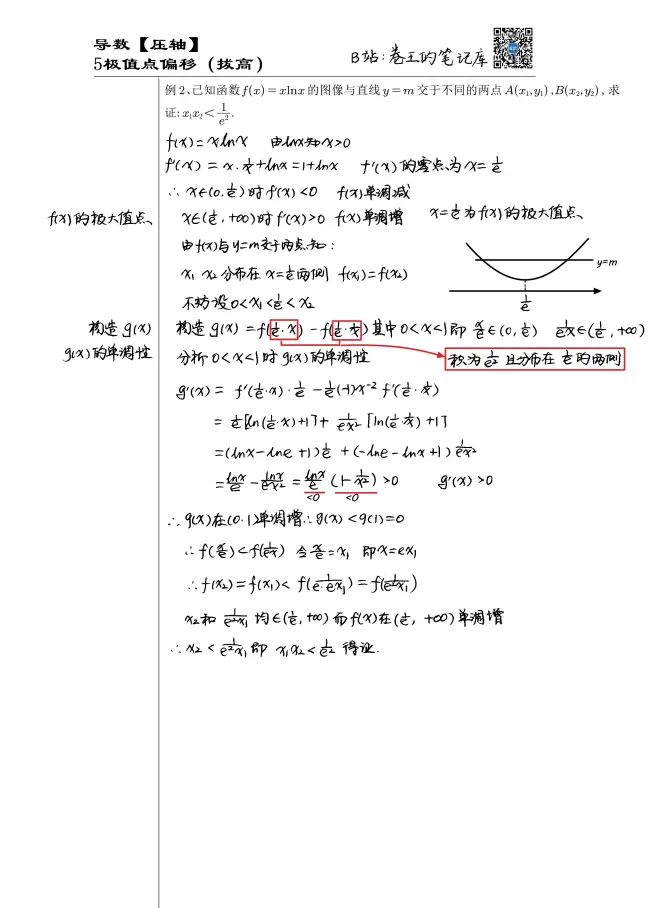 导数【压轴】
5极值点偏移（拔高）
B站：卷王的笔记库
例2、已知函数 f(x)=xlnx 的图像与直线 y=m 交于不同的两点 A(x₁,y₁),B(x₂,y₂)，求
证：x₁x₂<1/e².
f(x)=xlnx 由lnx知x>0
f'(x)=x·1/x+lnx=1+lnx f'(x)的零点为x=1/e
∴ x∈(0,1/e)时f'(x)<0 f(x)单调减
f(x)的极大值点、
x∈(1/e,+∞)时f'(x)>0 f(x)单调增
x=1/e为f(x)的极大值点、
由f(x)与y=m交于两点知：
x₁ x₂分布在x=1/e两侧 f(x₁)=f(x₂)
不妨设0<x₁<1/e<x₂
y=m
1/e
构造g(x)
g(x)的单调性
构造g(x)=f(1/e·x)-f(1/e·1/x)其中0<x<1即x/e∈(0,1/e) 1/ex∈(1/e,+∞)
分析0<x<1时g(x)的单调性
积为1/e²且分布在1/e的两侧
g'(x)=f'(1/e·x)·1/e-1/e(-1)x⁻²f'(1/e·1/x)
=1/e[ln(1/e·x)+1]+1/ex²[ln(1/e·1/x)+1]
=(lnx-lne+1)1/e+(-lne-lnx+1)1/ex²
=lnx/e-lnx/ex²=lnx/e(1-1/x²)>0 g'(x)>0
<0 <0
∴g(x)在(0·1)单调增∴g(x)<g(1)=0
∴f(x/e)<f(1/ex) 令x/e=x₁ 即x=ex₁
∴f(x₂)=f(x₁)<f(1/e·ex₁)=f(1/e²x₁)
x₂和1/e²x₁均∈(1/e,+∞)而f(x)在(1/e,+∞)单调增
∴x₂<1/e²x₁即 x₁x₂<1/e² 得证.